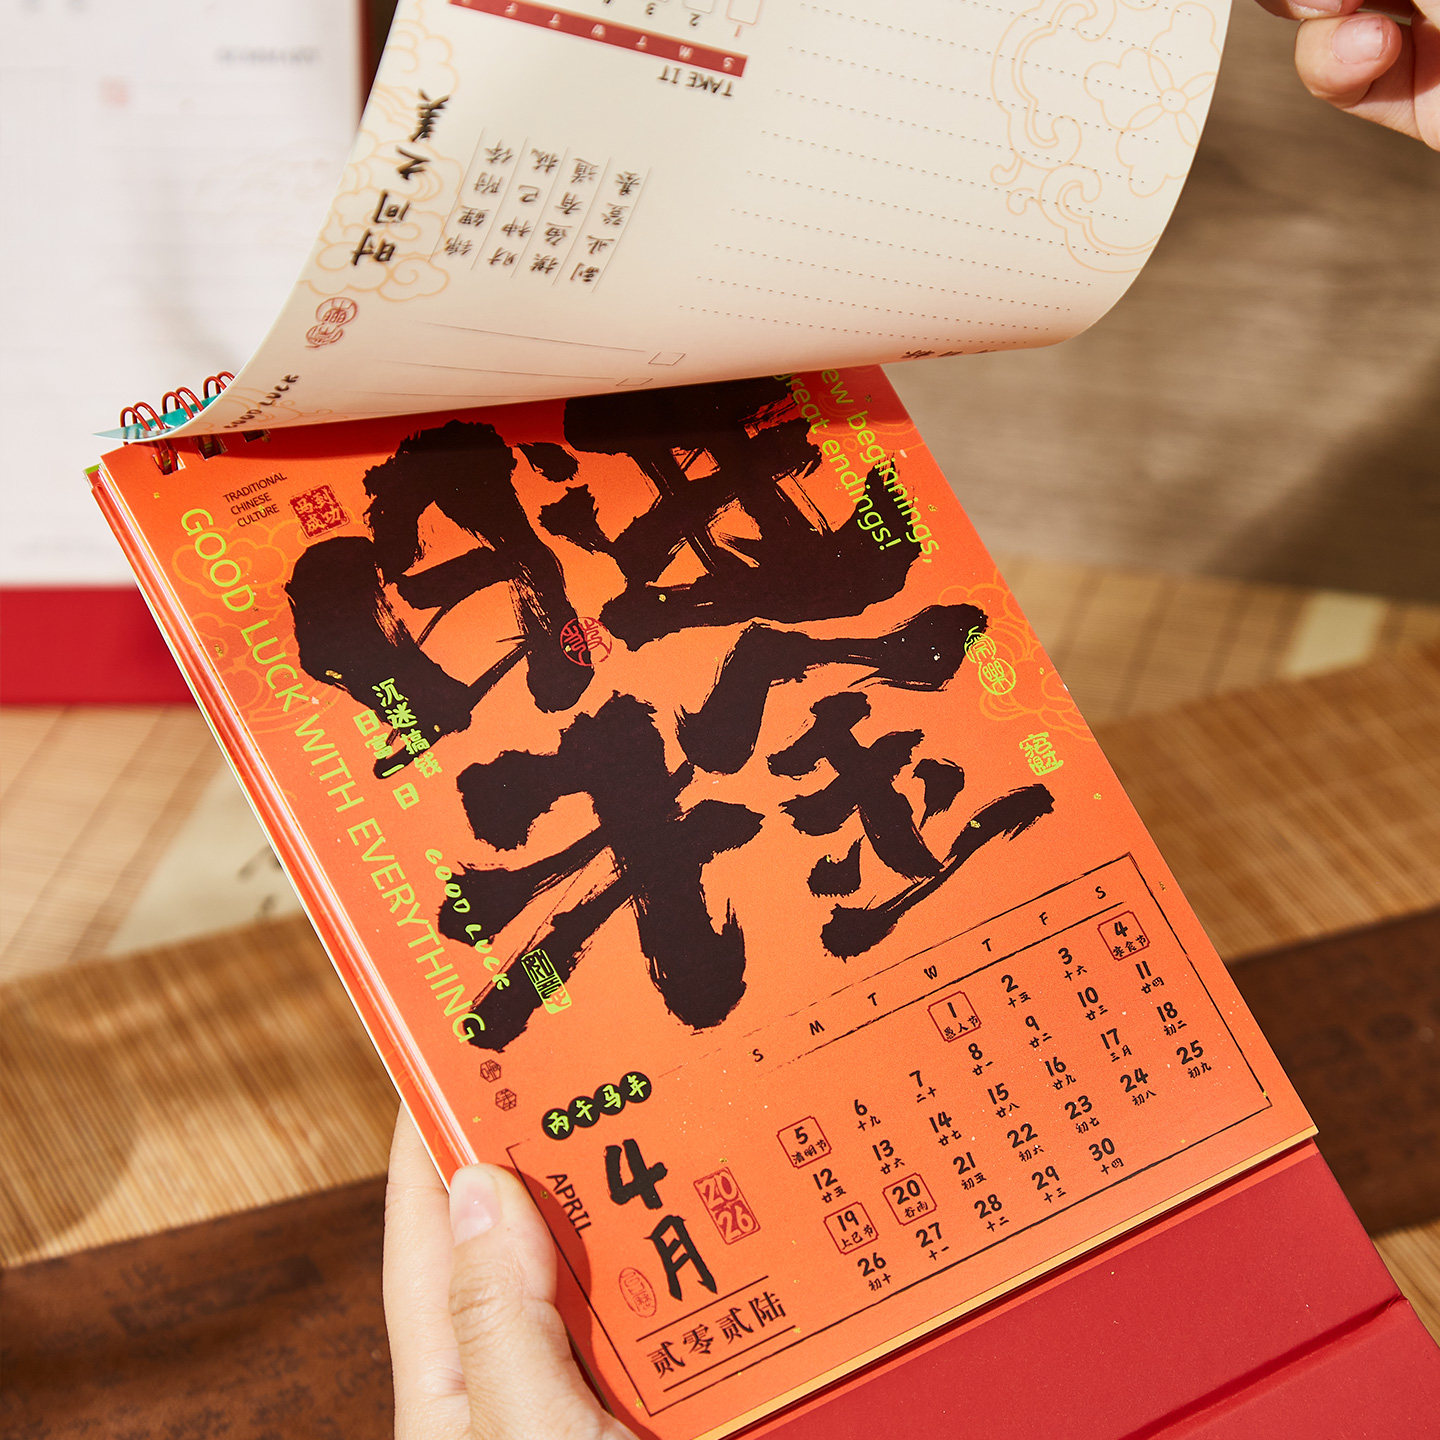 时间之美
锦鲤附体
摸鱼有道
副业登基
TAKE IT
S M T W T F
1
2
3
GOOD LUCK
TRADITIONAL
CHINESE
CULTURE
马到
成功
GOOD LUCK WITH EVERYTHING
日进
斗金
ew beginnings,
great endings!
沉迷搞钱
日富一日
GOOD LUCK
常樂
丙午马年
4月
APRIL
2026
贰零贰陆
S M T W T F S
1 2 3 4
愚人节 十五 十六 寒食节
5 6 7 8 9 10 11
清明节 十九 二十 廿一 廿二 廿三 廿四
12 13 14 15 16 17 18
廿五 廿六 廿七 廿八 廿九 三月 初二
19 20 21 22 23 24 25
上巳节 谷雨 初五 初六 初七 初八 初九
26 27 28 29 30
初十 十一 十二 十三 十四